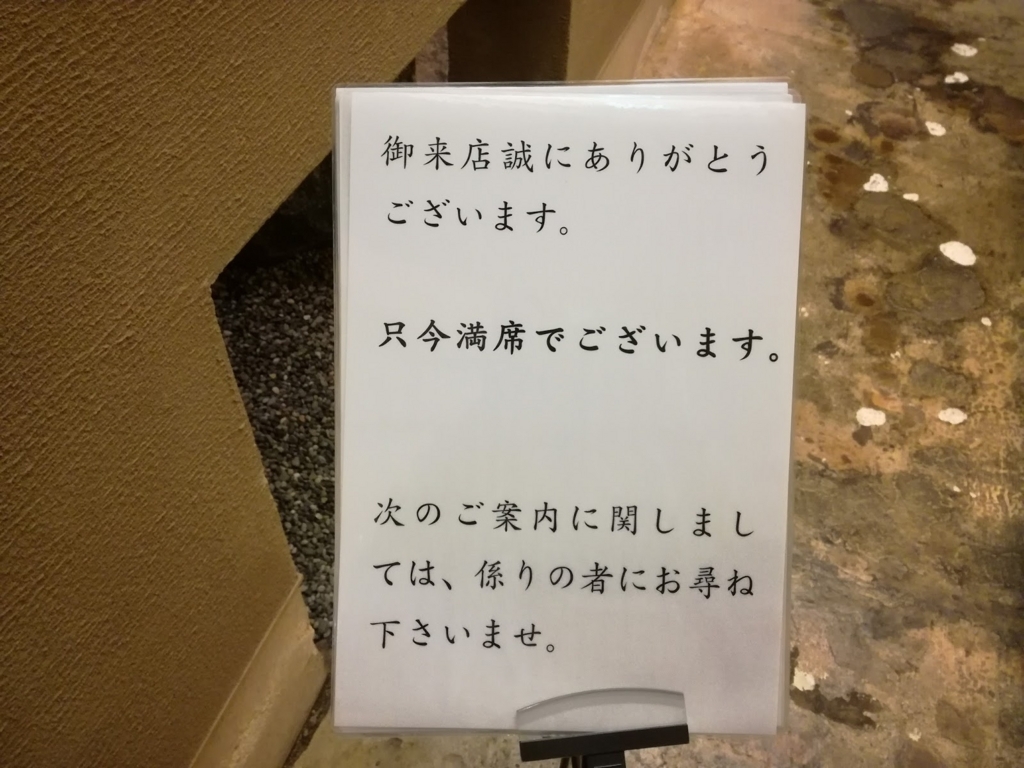 御来店誠にありがとう
ございます。
只今満席でございます。
次のご案内に関しまし
ては、係りの者にお尋ね
下さいませ。